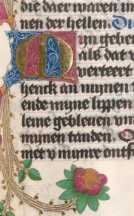 die daer waren in
nen der hellen.
In geber
als dat v
verteert
henck an mynen
ende myne lippen
leme gebleuen vm
mynen tanden.
met v mynre ontf